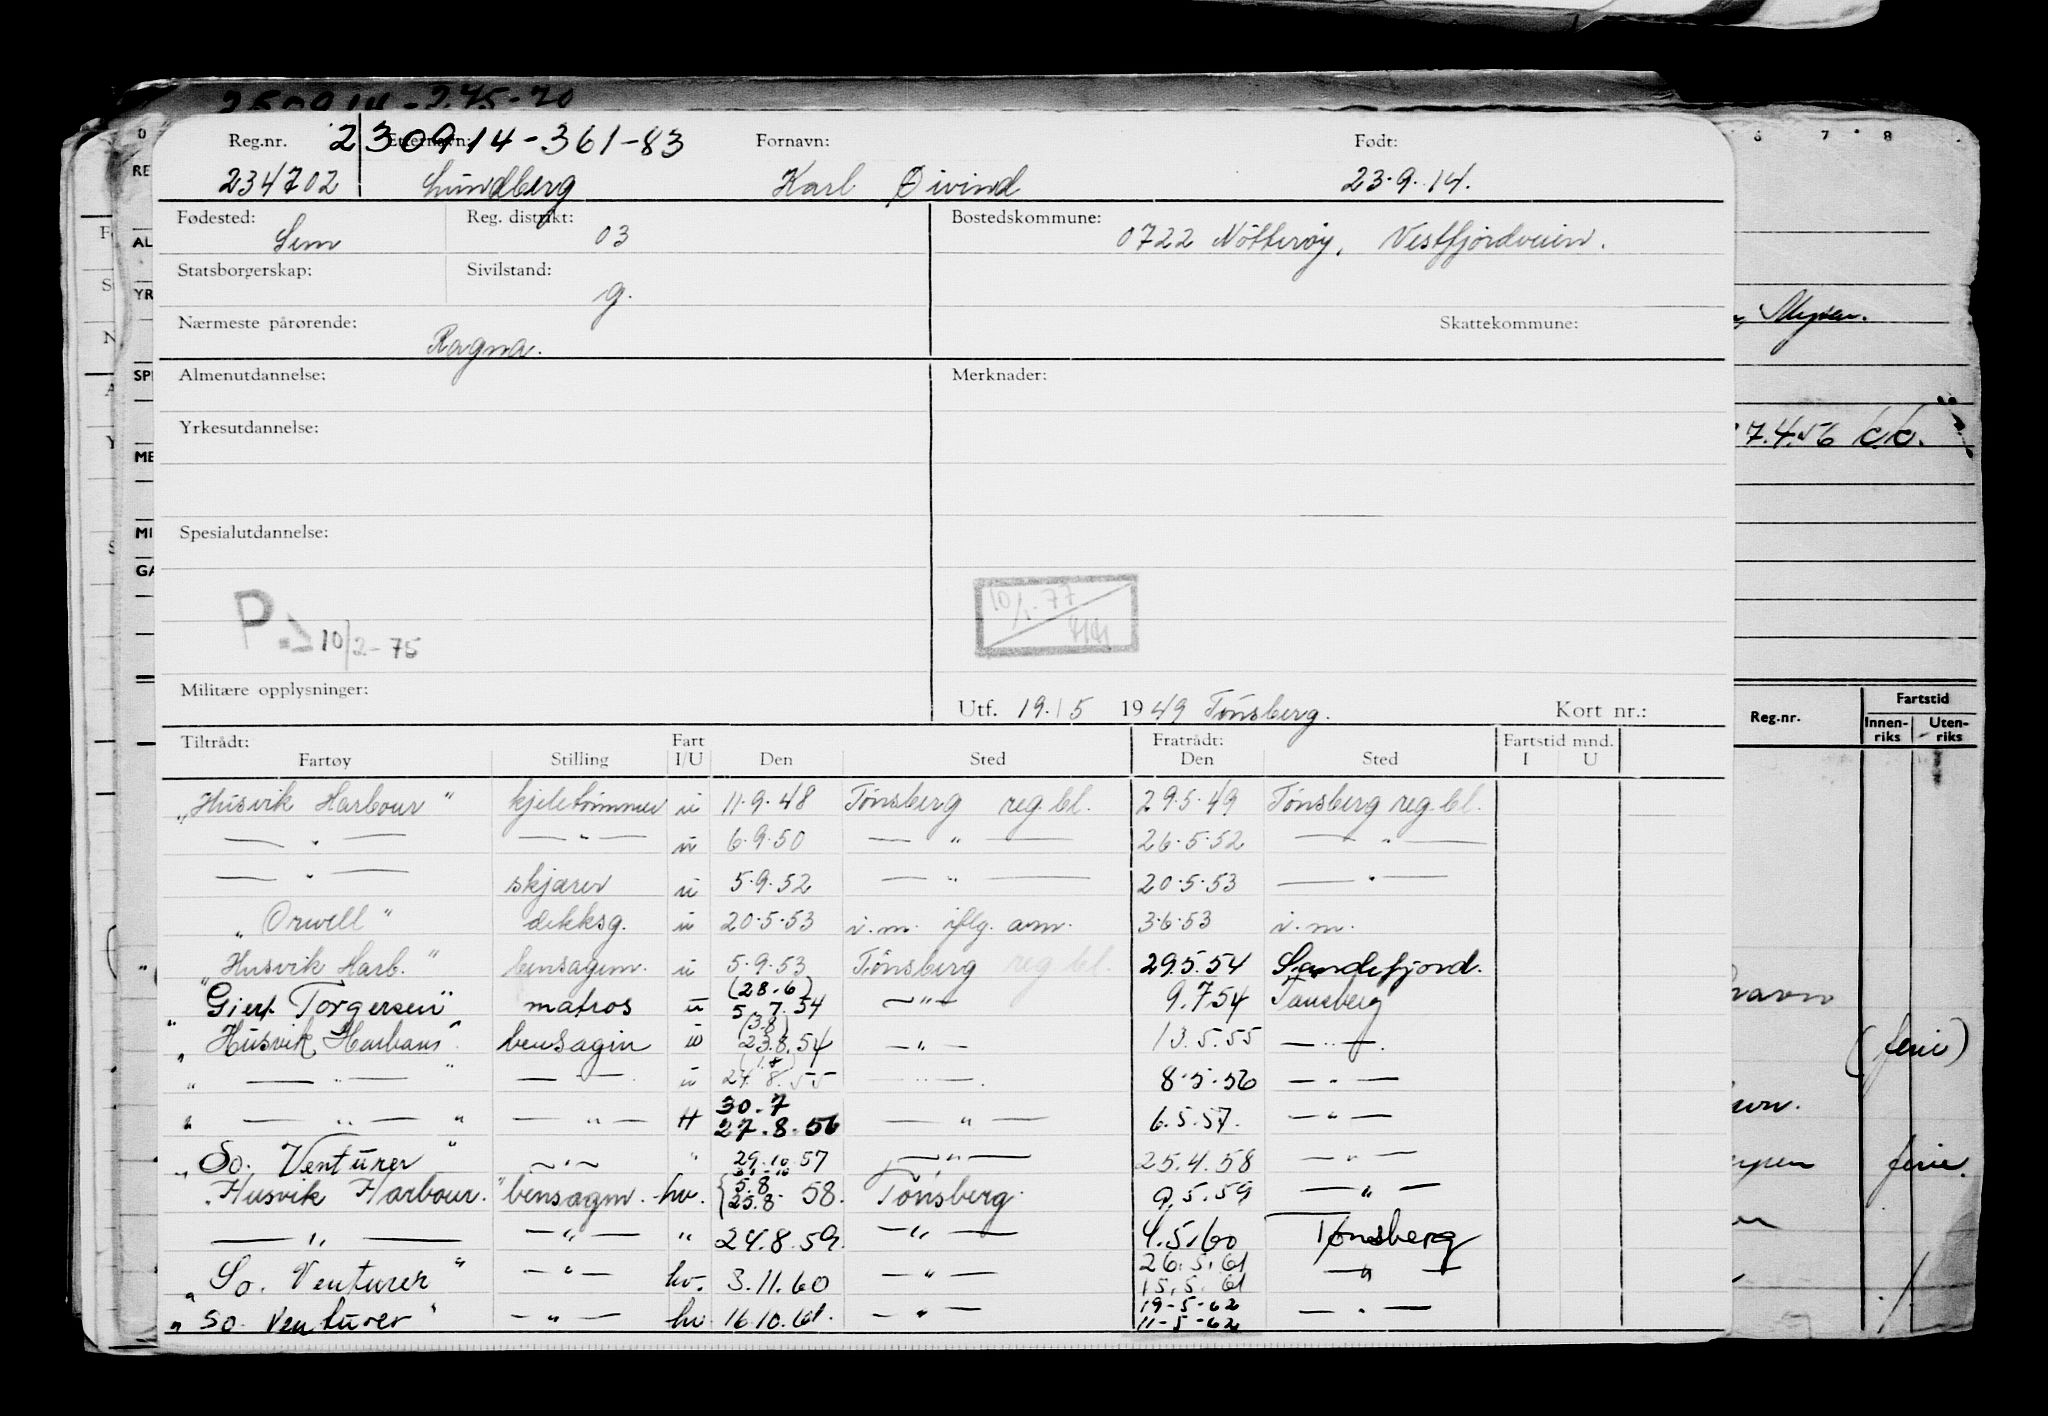 250914-245-70
230914-361-83
Reg.nr. Etternavn: Fornavn: Født:
234702 Lundberg Karl Øivind 23.9.14.
Fødested: Reg. distrikt: Bostedskommune:
Sem 03 0722 Nötteröy, Vestfjordveien.
Statsborgerskap: Sivilstand:
g.
Nærmeste pårørende: Skattekommune:
Ragna.
Almenutdannelse: Merknader:
Yrkesutdannelse:
Spesialutdannelse:
P. 10/2-75
10/1-77
Militære opplysninger:
Utf. 19/5 1949 Tönsberg. Kort nr.:
Tiltrådt: Fart Fratrådt: Fartstid mnd.
Fartøy Stilling I/U Den Sted Den Sted I U
"Husvik Harbour" kjeletömmer u 11.9.48 Tönsberg reg.bl. 29.5.49 Tönsberg reg.bl.
— " — — " — u 6.9.50 — " — 26.5.52 — " —
— " — skjærer u 5.9.52 — " — 20.5.53 — " —
"Orwell" dekksg. u 20.5.53 i.m. iflg. anm. 3.6.53 i.m.
"Husvik Harb." bensagm. u 5.9.53 Tönsberg reg.bl. 29.5.54 Sandefjord.
"Giert Torgersen" matros u (28.6) 5.7.54 — " — 9.7.54 Tønsberg
"Husvik Harbour" bensagm u (3.8) 23.8.54 — " — 13.5.55 — " —.
" — " — " — " — u (1.8) 24.8.55 — " —. 8.5.56 — " —
" — " — " — " — H 30.7 27.8.56 — " — 6.5.57. — " —
"So. Venturer" — " — " 29.10.57 — " — 25.4.58 — " —
"Husvik Harbour." bensagm. hv. {5.8 25.8 58. Tönsberg. 9.5.59 — " —
— " — — " — " 24.8.59. — " — 4.5.60 Tønsberg
"So. Venturer" — " — hv. 3.11.60 — " — 26.5.61 15.5.61 — " —
"So Venturer" — " — hv 16.10.61. — " — 19-5-62 11-5-62 — " —
6 7 8
Mysen.
7.4.56
Reg.nr. Fartstid
Innen-
riks
Uten-
riks
(ferie)
ferie.